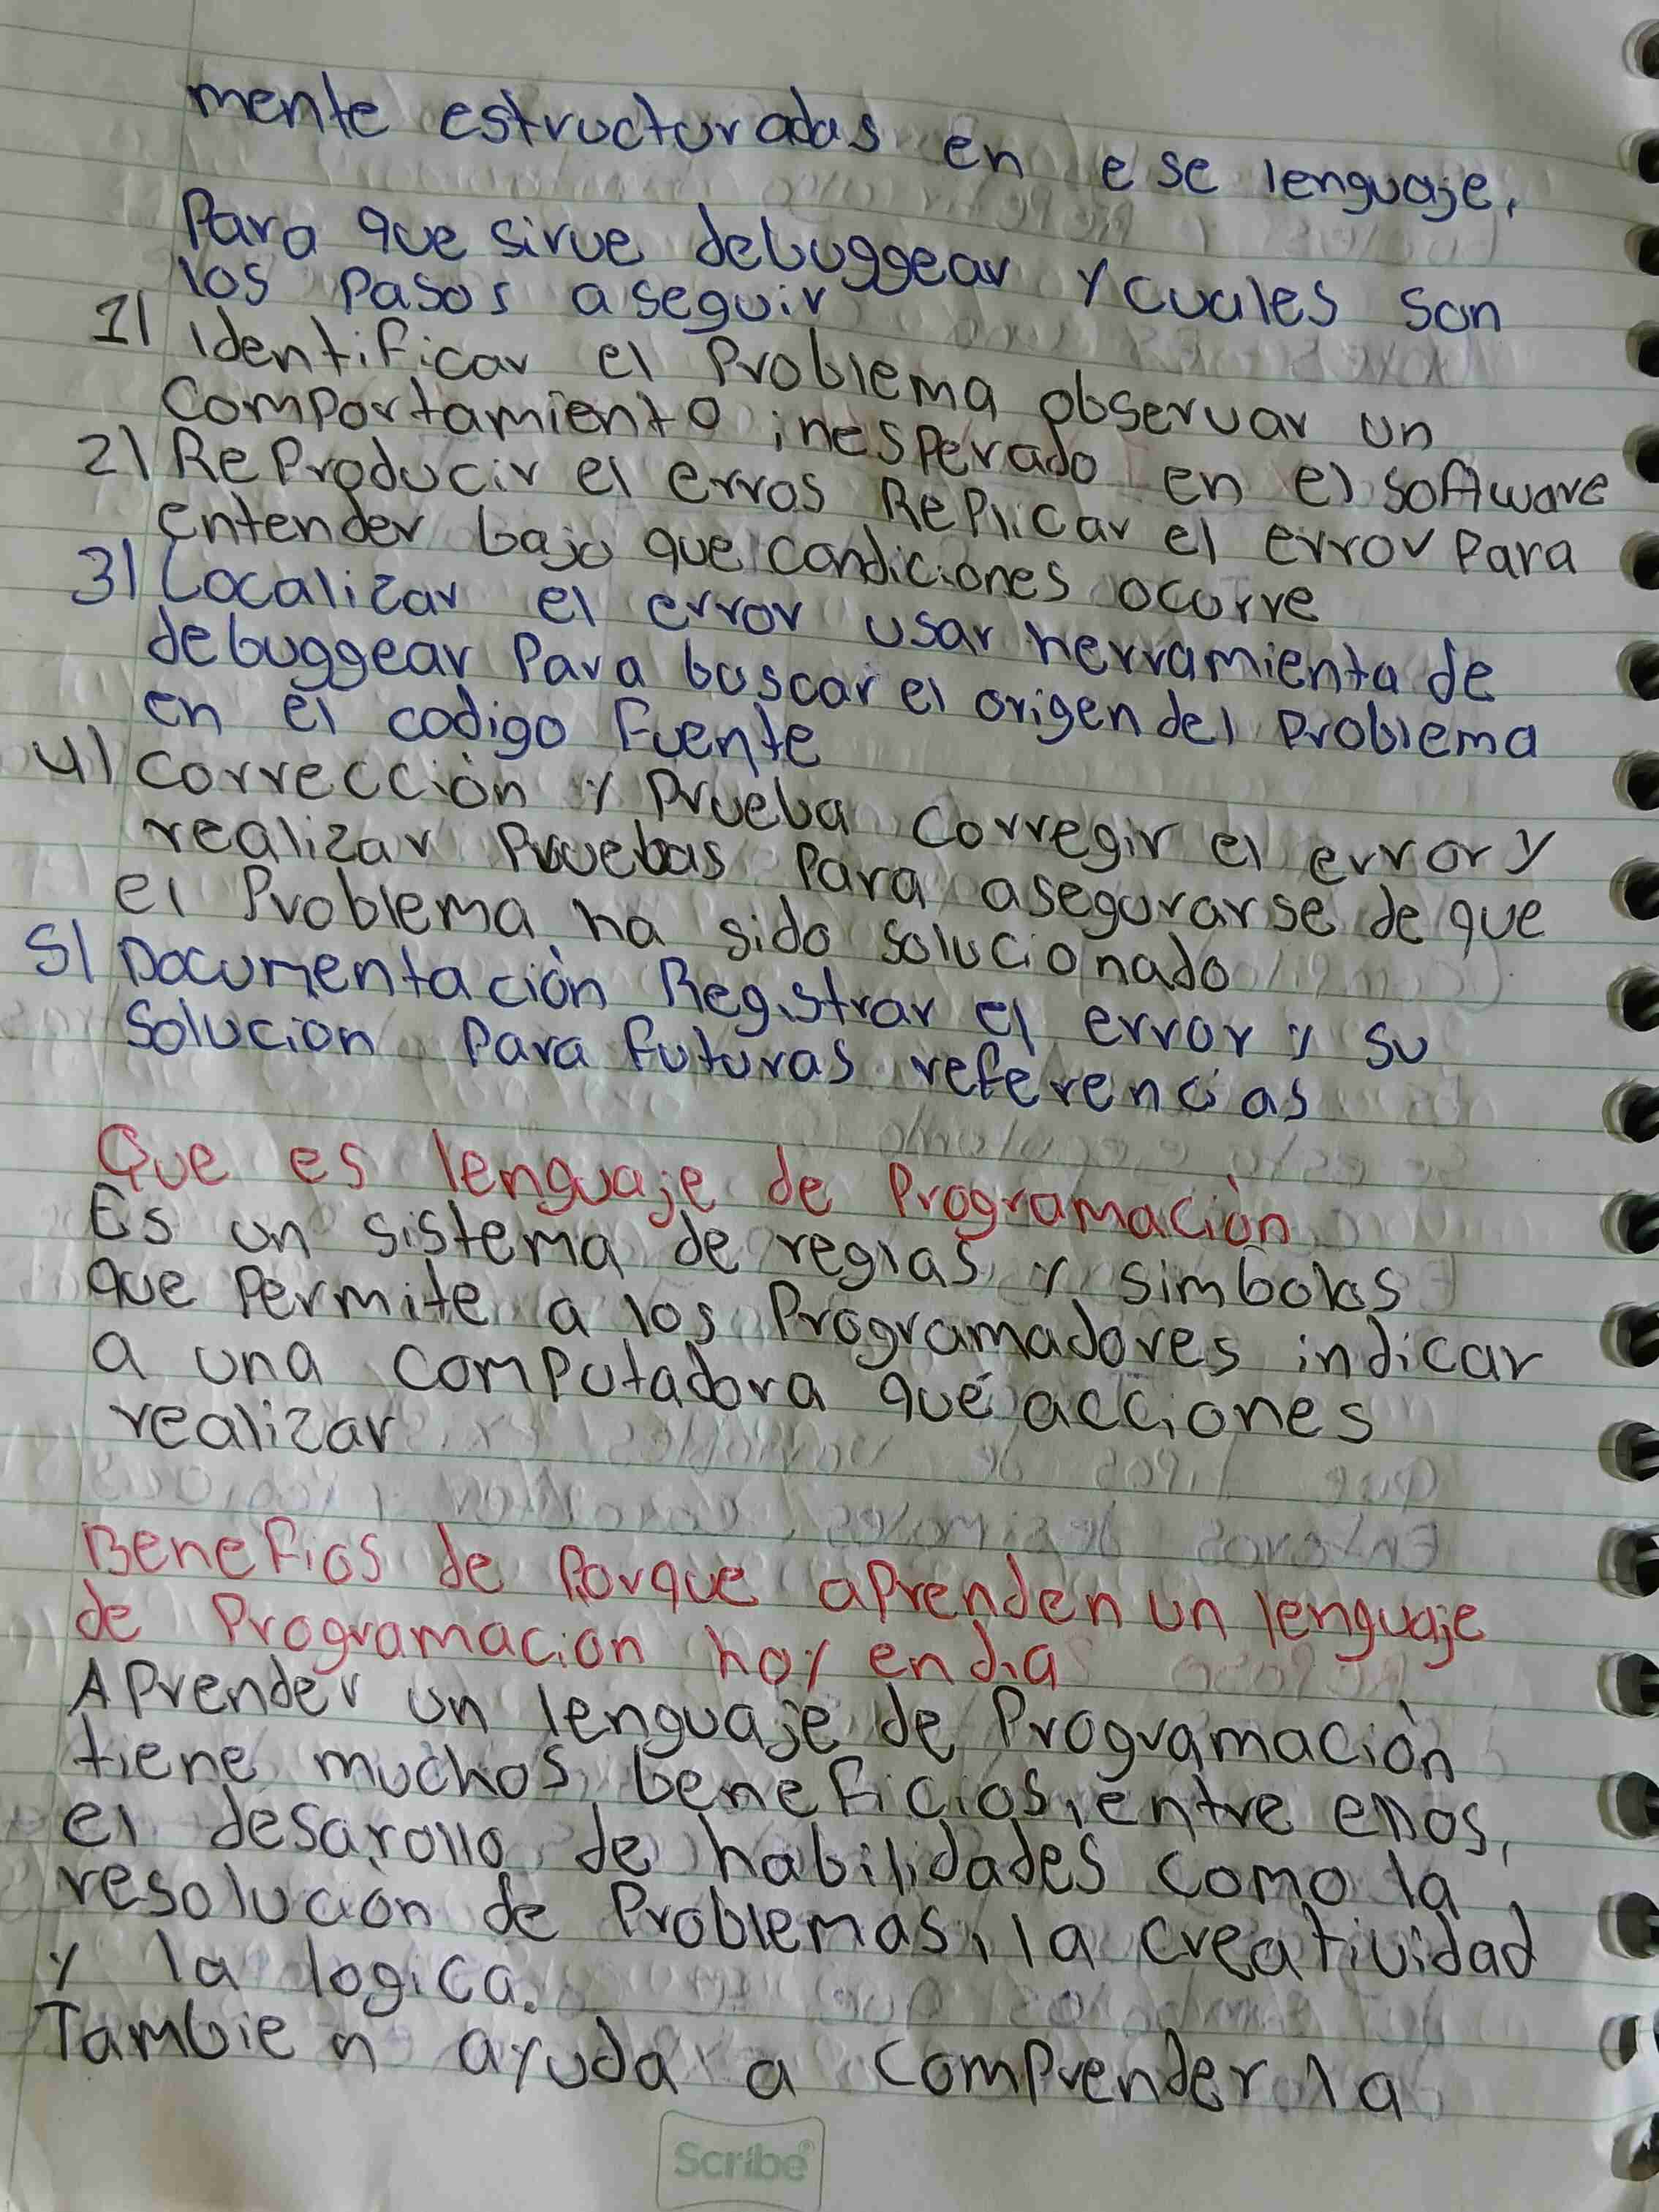 mente estructuradas en ese lenguaje,
Para que sirve debuggear y cuales son
los pasos a seguir
1) Identificar el Problema observar un
Comportamiento inesperado en el software
2) Reproducir el erros Replicar el error Para
entender bajo que condiciones ocurre
3) Localizar el error usar herramienta de
debuggear Para buscar el origen del Problema
en el codigo Fuente
4) Corrección y Prueba Corregir el error y
realizar Pruebas Para asegurarse de que
el Problema ha sido solucionado
5) Documentación Registrar el error y su
Solucion Para futuras referencias
Que es lenguaje de Programación
Es un sistema de reglas y simbolos
que Permite a los Programadores indicar
a una computadora qué acciones
realizar
Benefios de Porque aprenden un lenguaje
de Programacion hoy en dia
Aprender un lenguaje de Programación
tiene muchos beneficios, entre ellos,
el desarollo de habilidades como la
resolucion de Problemas, la creatividad
y la logica.
Tambien ayuda a comprender la
Scribe®